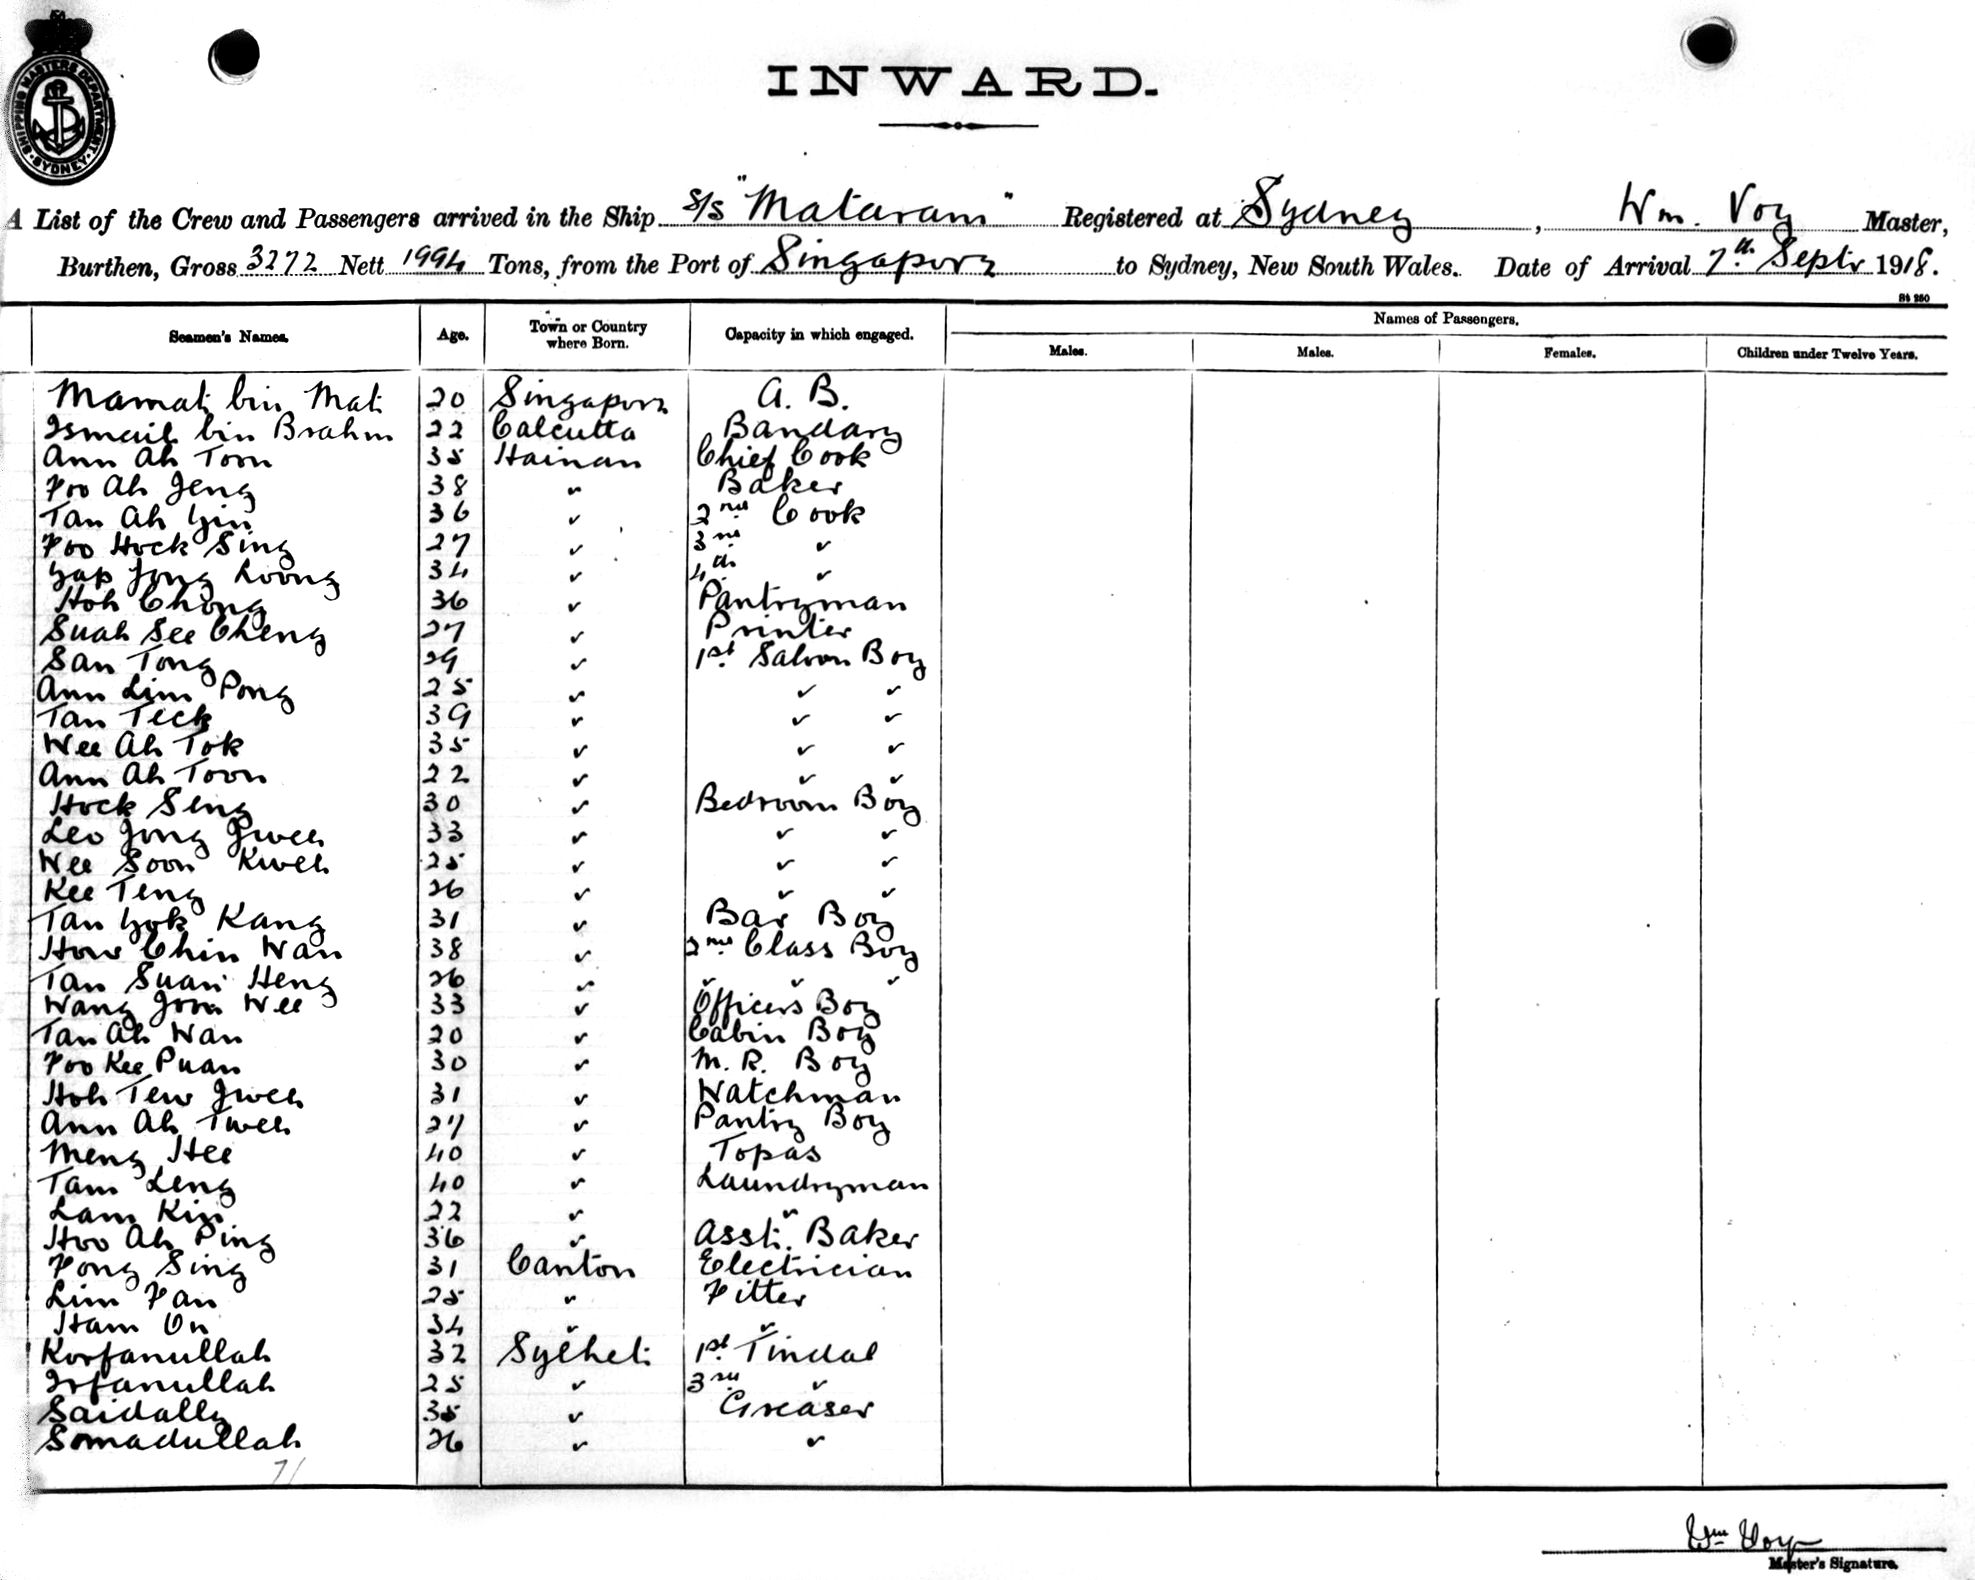 SHIPPING MASTERS DEPARTMENT · SYDNEY ·
INWARD.
A List of the Crew and Passengers arrived in the Ship S/S "Mataram" Registered at Sydney, Wm. Voy Master,
Burthen, Gross 3272 Nett 1994 Tons, from the Port of Singapore to Sydney, New South Wales. Date of Arrival 7th Septr 1918.
St 250
Seamen's Names. Age. Town or Country where Born. Capacity in which engaged. Names of Passengers.
Males. Males. Females. Children under Twelve Years.
Mamat bin Mat 20 Singapore A. B.
Ismail bin Brahm 22 Calcutta Bandary
Ann Ah Toon 35 Hainan Chief Cook
Foo Ah Jeng 38 " Baker
Tan Ah Yin 36 " 2nd Cook
Foo Hock Sing 27 " 3rd "
Yap Jong Loong 34 " 4th "
Hoh Chong 36 " Pantryman
Suah See Cheng 27 " Printer
San Tong 29 " 1st Saloon Boy
Ann Lim Pong 25 " " "
Tan Teck 39 " " "
Wee Ah Tok 35 " " "
Ann Ah Toon 22 " " "
Hock Seng 30 " Bedroom Boy
Leo Jong Jweh 33 " " "
Wee Soon Kweh 25 " " "
Kee Teng 26 " " "
Tan Yok Kang 31 " Bar Boy
How Chin Wan 38 " 2nd Class Boy
Tan Suan Heng 26 " " " "
Wang Joon Wee 33 " Officers Boy
Tan Ah Wan 20 " Cabin Boy
Foo Kee Puan 30 " M. R. Boy
Hoh Tew Jweh 31 " Watchman
Ann Ah Tweh 27 " Pantry Boy
Meng Hee 40 " Topas
Tam Leng 40 " Laundryman
Lam Kin 22 " "
Hoo Ah Ping 36 " Asst. Baker
Fong Sing 31 Canton Electrician
Lim Fan 25 " Fitter
Ham On 34 " "
Korfanullah 32 Sylhet 1st Tindal
Irfanullah 25 " 3rd "
Saidally 35 " Greaser
Somadullah 26 " "
71
Wm Voy
Master's Signature.